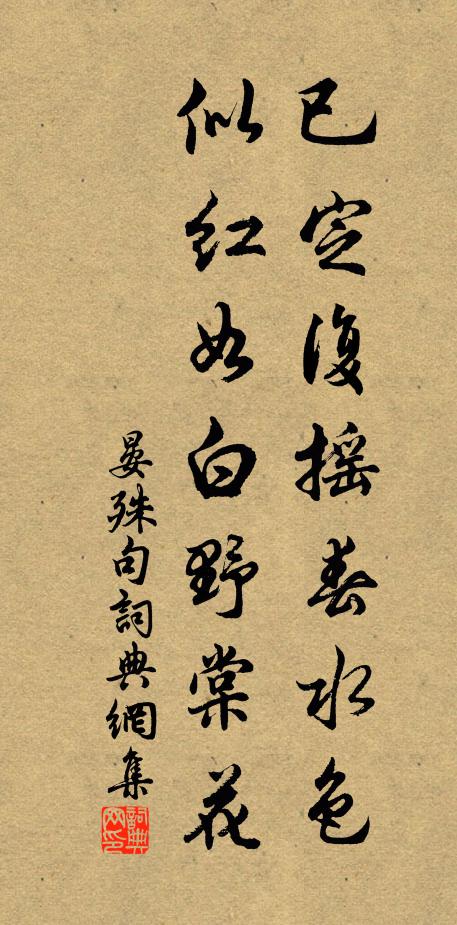 已定復摇春水色
似红如白野棠花
晏殊句詞典網集
詞典网印